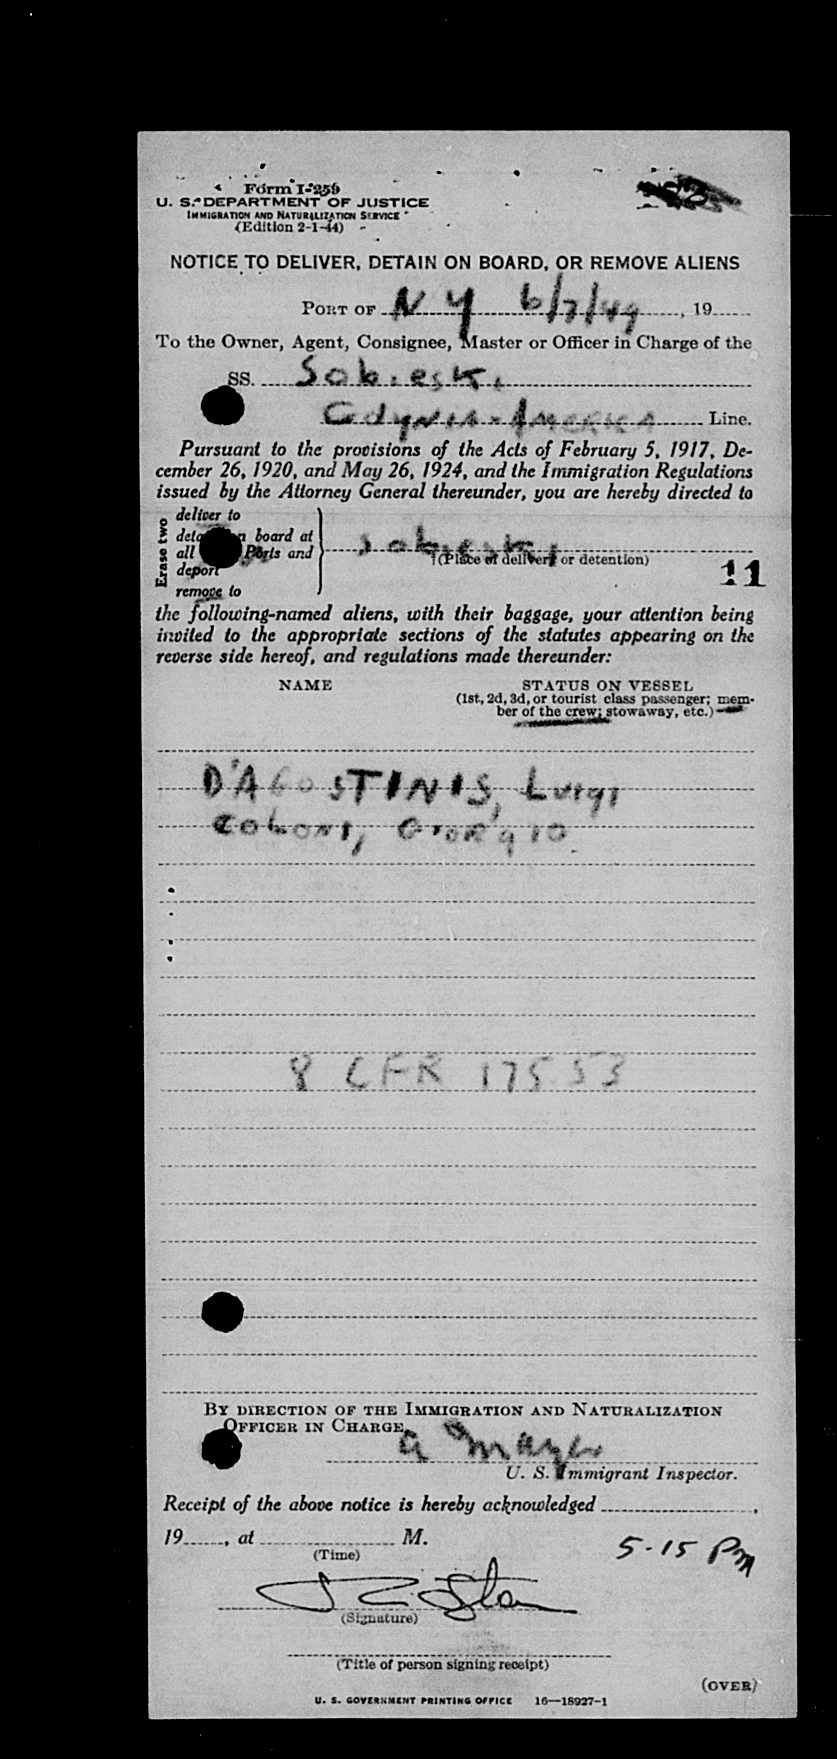 Form I-259
U. S. DEPARTMENT OF JUSTICE
IMMIGRATION AND NATURALIZATION SERVICE
(Edition 2-1-44)
NOTICE TO DELIVER, DETAIN ON BOARD, OR REMOVE ALIENS
PORT OF N Y 6/7/49, 19
To the Owner, Agent, Consignee, Master or Officer in Charge of the
SS. Sobieski
Gdynia-America Line.
Pursuant to the provisions of the Acts of February 5, 1917, De-
cember 26, 1920, and May 26, 1924, and the Immigration Regulations
issued by the Attorney General thereunder, you are hereby directed to
Erase two
deliver to
board at
all Ports and
deport
remove to
Sobieski
(Place of delivery or detention)
11
the following-named aliens, with their baggage, your attention being
invited to the appropriate sections of the statutes appearing on the
reverse side hereof, and regulations made thereunder:
NAME STATUS ON VESSEL
(1st, 2d, 3d, or tourist class passenger; mem-
ber of the crew; stowaway, etc.)
D'AGOSTINIS, Luigi
Giorgio
8 CFR 175.53
BY DIRECTION OF THE IMMIGRATION AND NATURALIZATION
OFFICER IN CHARGE
U. S. Immigrant Inspector.
Receipt of the above notice is hereby acknowledged ,
19 , at M.
(Time)
5-15 PM
(Signature)
(Title of person signing receipt)
(OVER)
U. S. GOVERNMENT PRINTING OFFICE 16—18927-1